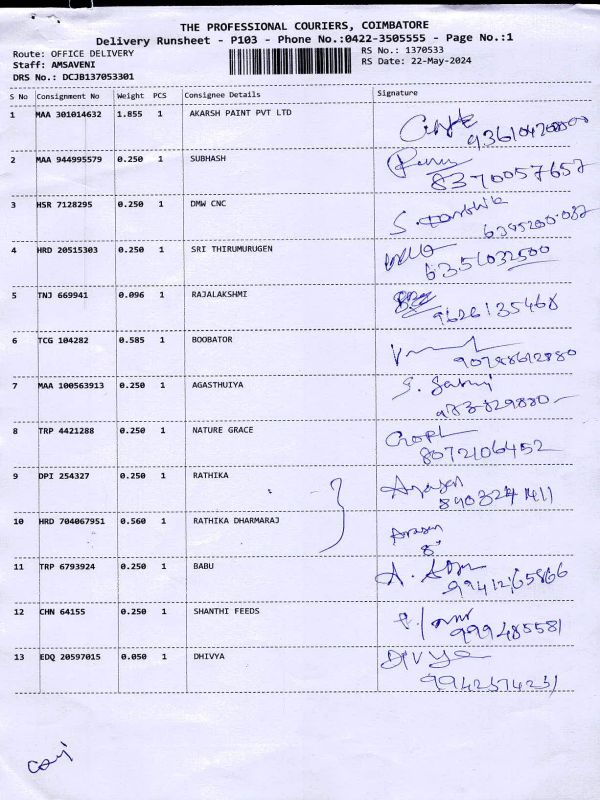 THE PROFESSIONAL COURIERS, COIMBATORE
Delivery Runsheet - P103 - Phone No.:0422-3505555 - Page No.:1
Route: OFFICE DELIVERY
RS No.: 1370533
Staff: AMSAVENI
RS Date: 22-May-2024
DRS No.: DCJB137053301
S No Consignment No Weight PCS Consignee Details Signature
1 MAA 301014632 1.855 1 AKARSH PAINT PVT LTD
2 MAA 944995579 0.250 1 SUBHASH
8370057657
3 HSR 7128295 0.250 1 DMW CNC
4 HRD 20515303 0.250 1 SRI THIRUMURUGEN
6351032500
5 TNJ 669941 0.096 1 RAJALAKSHMI
9626135468
6 TCG 104282 0.585 1 BOOBATOR
7 MAA 100563913 0.250 1 AGASTHUIYA
8 TRP 4421288 0.250 1 NATURE GRACE
8072106452
9 DPI 254327 0.250 1 RATHIKA
10 HRD 704067951 0.560 1 RATHIKA DHARMARAJ
11 TRP 6793924 0.250 1 BABU
9941265866
12 CHN 64155 0.250 1 SHANTHI FEEDS
13 EDQ 20597015 0.050 1 DHIVYA
Divya